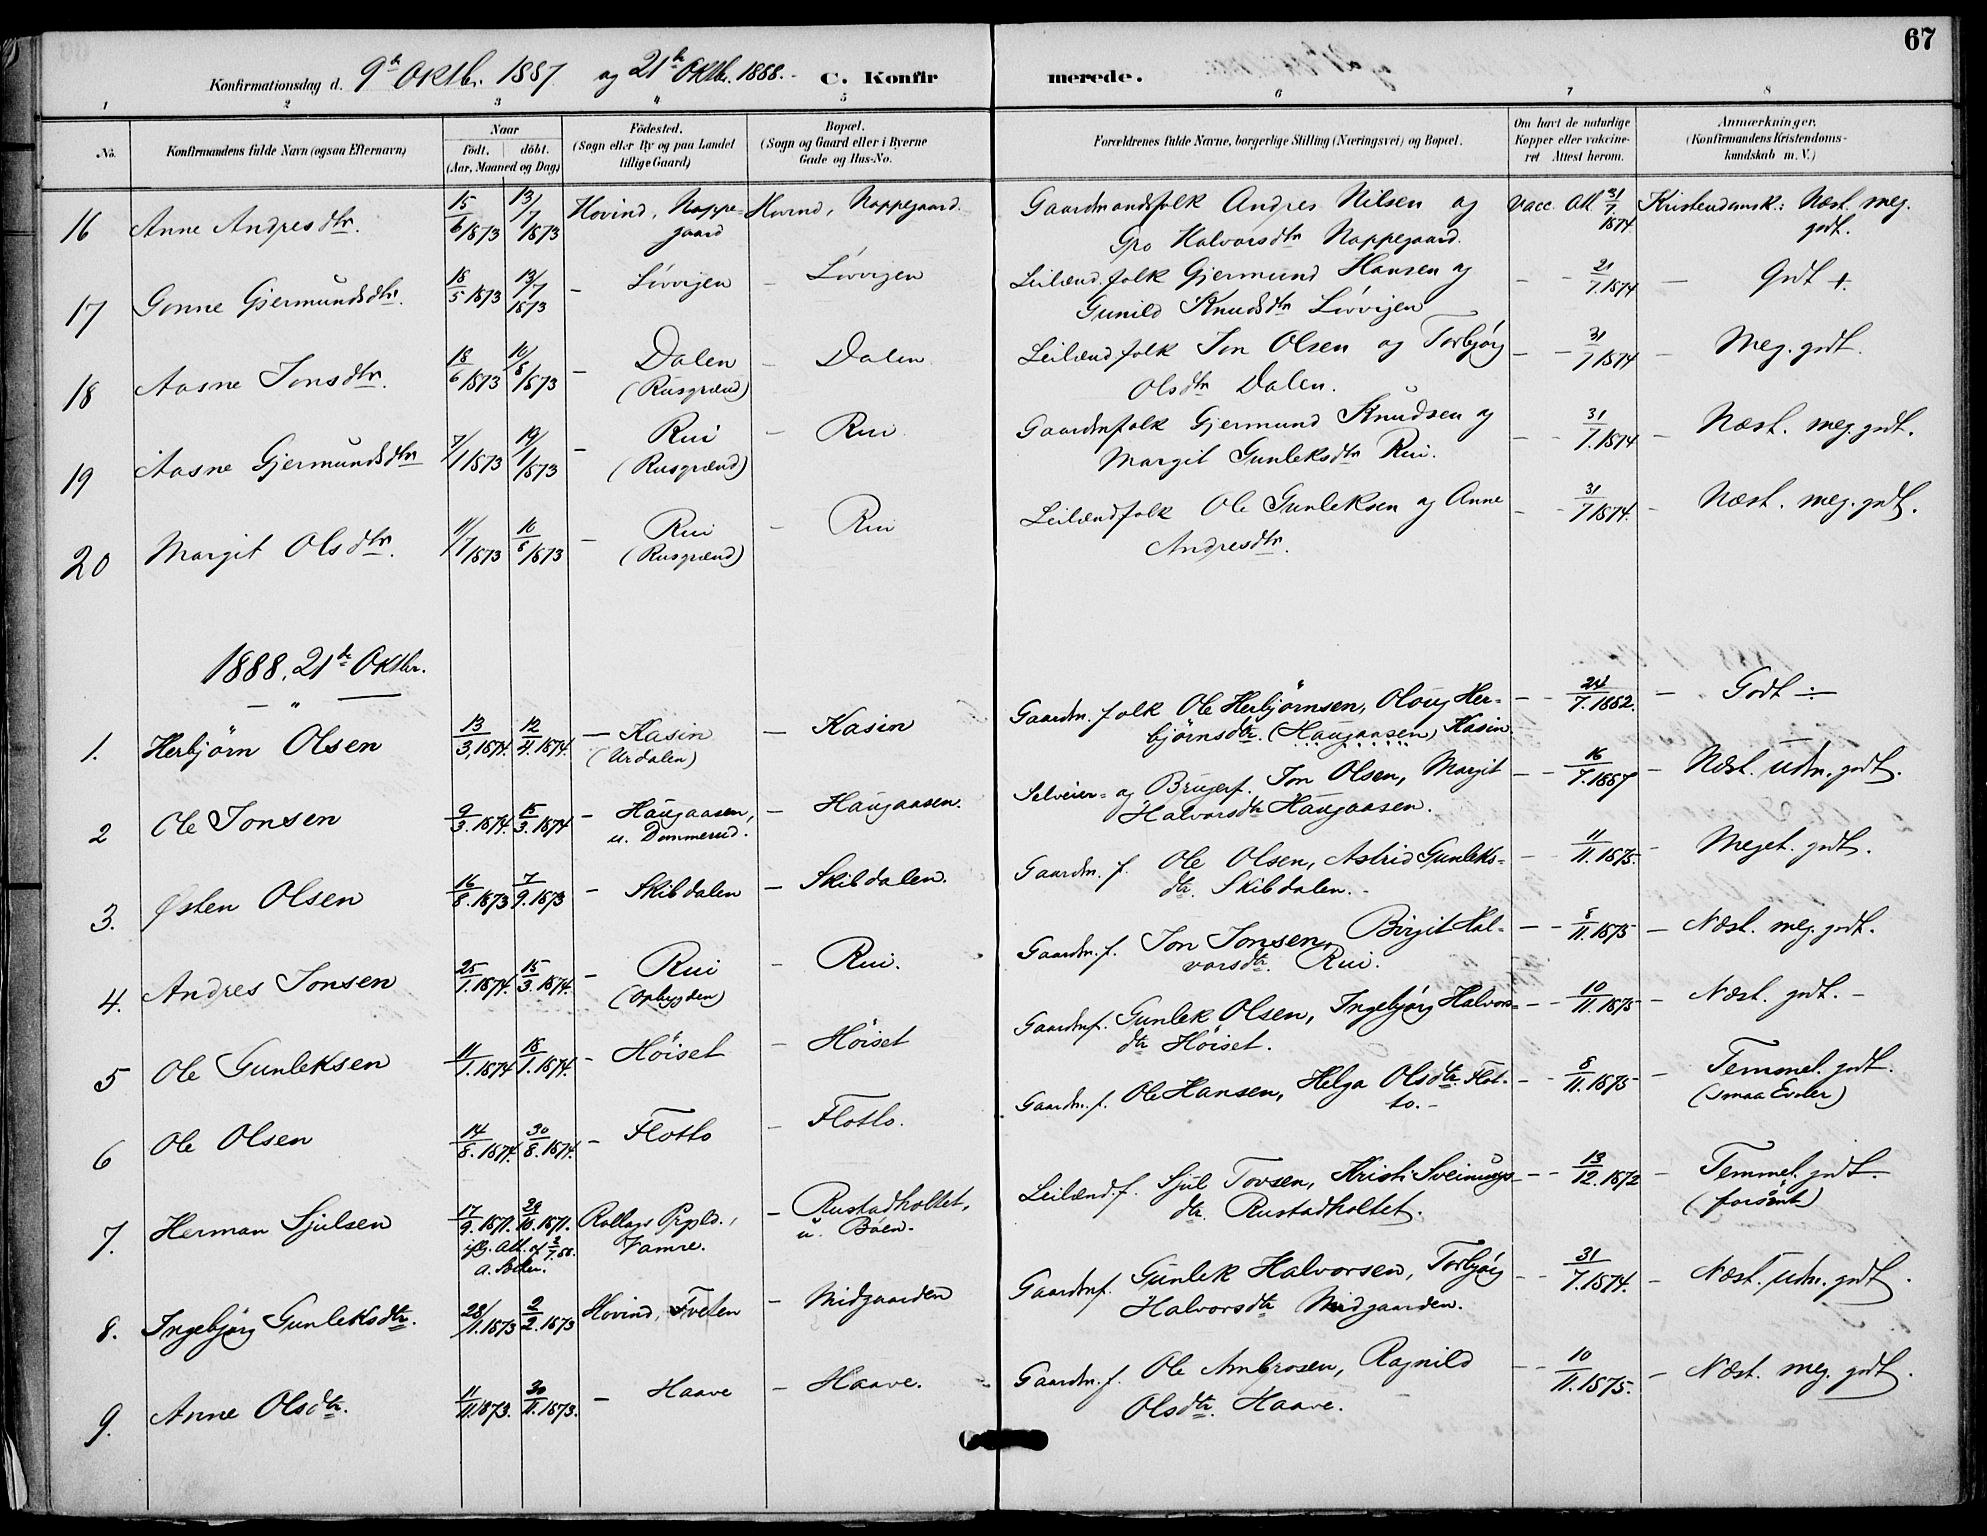 67
Konfirmationsdag d. 9de Oktbr. 1887 og 21de Oktbr. 1888. C. Konfirmerede.
1 2 3 4 5 6 7 8
No. Konfirmandens fulde Navn (ogsaa Efternavn) Naar født. døbt. (Aar, Maaned og Dag) Fødested. (Sogn eller By og paa Landet tillige Gaard) Bopæl. (Sogn og Gaard eller i Byerne Gade og Hus-No. Forældrenes fulde Navne, borgerlige Stilling (Næringsvei) og Bopæl. Om havt de naturlige Kopper eller vakcineret Attest herom. Anmærkninger, (Konfirmandens Kristendomskundskab m. V.)
16 Anne Andresdtr. 15/6 1873 13/7 1873 Hovind, Noppegaard Hovind, Noppegaard. Gaardmandsfolk Andres Nilsen og Gro Halvorsdtr Noppegaard. Vacc. Att. 31/7 1874 Kristendomsk.: Næst. meg. godt.
17 Gonne Gjermundsdtr. 18/5 1873 13/7 1873 – Løvvigen – Løvvigen Leilænd.folk Gjermund Hansen og Gunild Knudsdtr Løvvigen – – 21/7 1874 – Godt +.
18 Aasne Jonsdtr. 18/6 1873 10/8 1873 – Dalen (Rusgrænd) – Dalen Leilændfolk Jon Olsen og Torbjøry Olsdtr Dalen. – – 31/7 1874 – Meg. godt.
19 Aasne Gjermundsdtr 7/1 1873 19/1 1873 – Rui (Rusgrænd) – Rui Gaardmfolk Gjermund Knudsen og Margit Gunleksdtr Rui. – – 31/7 1874 – Næst. meg. godt.
20 Margit Olsdtr. 11/7 1873 10/8 1873 – Rui (Rusgrænd) – Rui Leilændfolk Ole Gunleksen og Anne Andresdtr. – – 31/7 1874. – Næst. meg. godt.
1888, 21de Oktbr.
1. Herbjørn Olsen 13/3. 1874. 12/4. 1874. – Kasin (Urdalen) – Kasin Gaardm.folk Ole Herbjørnsen, Oloug Herbjørnsdtr. (Haugaasen) Kasin. – – 24/7. 1882. – Godt ÷
2 Ole Jonsen 9/3. 1874 15/3. 1874 – Haugaasen, u. Dommerud. – Haugaasen. Selveier- og Brugerf. Jon Olsen, Margit Halvorsdtr Haugaasen. – – 16/7. 1887 – Næst. udm. godt.
3. Østen Olsen 16/8. 1873 7/9. 1873 – Skibdalen – Skibdalen. Gaardm. f. Ole Olsen, Astrid Gunleksdtr. Skibdalen. – – 11/11. 1875 – Meget. godt.
4. Andres Jonsen 25/1. 1874. 15/3. 1874. – Rui (Opbygden) – Rui. Gaardm. f. Jon Jonsen, Birgit Halvorsdtr. Rui. – – 8/11. 1875 – Næst. meg. godt.
5 Ole Gunleksen 11/1. 1874 18/1. 1874. – Høiset – Høiset Gaardmf. Gunlek Olsen, Ingebjørg Halvorsdtr Høiset. – – 10/11. 1875 – Næst. godt. –
6 Ole Olsen 14/8. 1874. 30/8. 1874. – Flotto – Flotto. Gaardm. f. Ole Hansen, Helga Olsdtr. Flotto. – – – 8/11. 1875 – Temmel. godt. (smaa Evner)
7. Herman Sjulsen 17/9. 1871. 29/10. 1871. iflg. Att. af 3/7. 88. Rollags Prpld., Vamre. – Rustadholtet, u. Bøen. Leilænd. f. Sjul Tovsen, Kristi Sveinungsdtr. Rustadholtet. – – 13/12. 1872 – Temmel. godt. (forsømt)
8. Ingebjørg Gunleksdtr. 28/1. 1873 2/2. 1873 Hovind, Tveten – Midgaarden Gaardmf. Gunlek Halvorsen, Torbjørg Halvorsdtr Midgaarden. – – 31/7. 1874. – Næst. udm. godt.
9. Anne Olsdtr. 11/11. 1873. 30/11. 1873. – Haave – Haave. Gaardm. f. Ole Ambrosen, Ragnild Olsdtr. Haave. – – 10/11. 1875. – Næst. meg. godt.